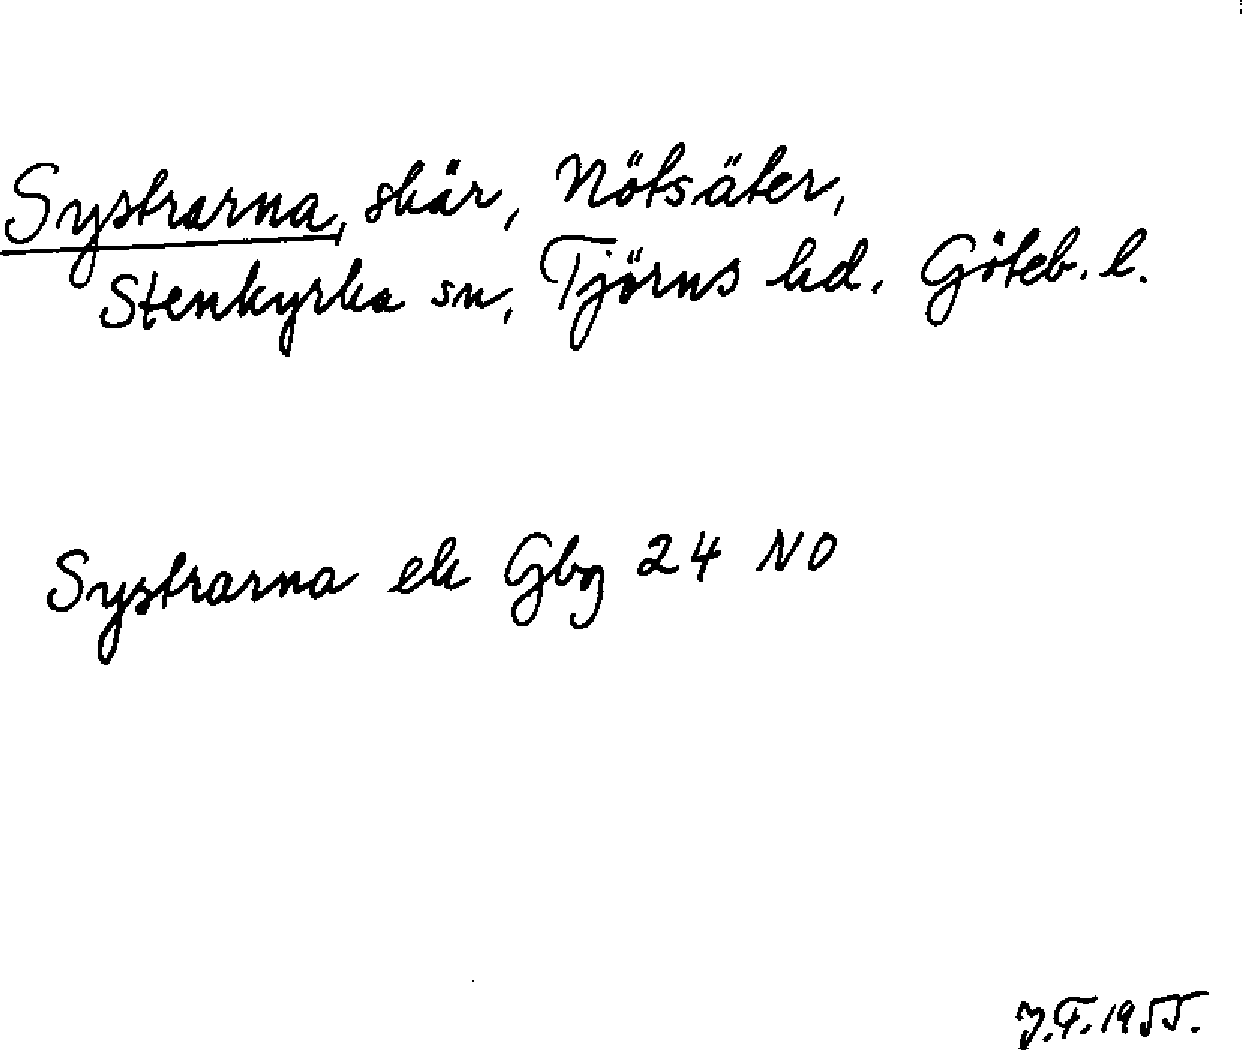 Systrarna, skär, Nötsäter,
Stenkyrka sn, Tjörns hd, Göteb. l.
Systrarna ek Gbg 24 NO
J.F. 1955.